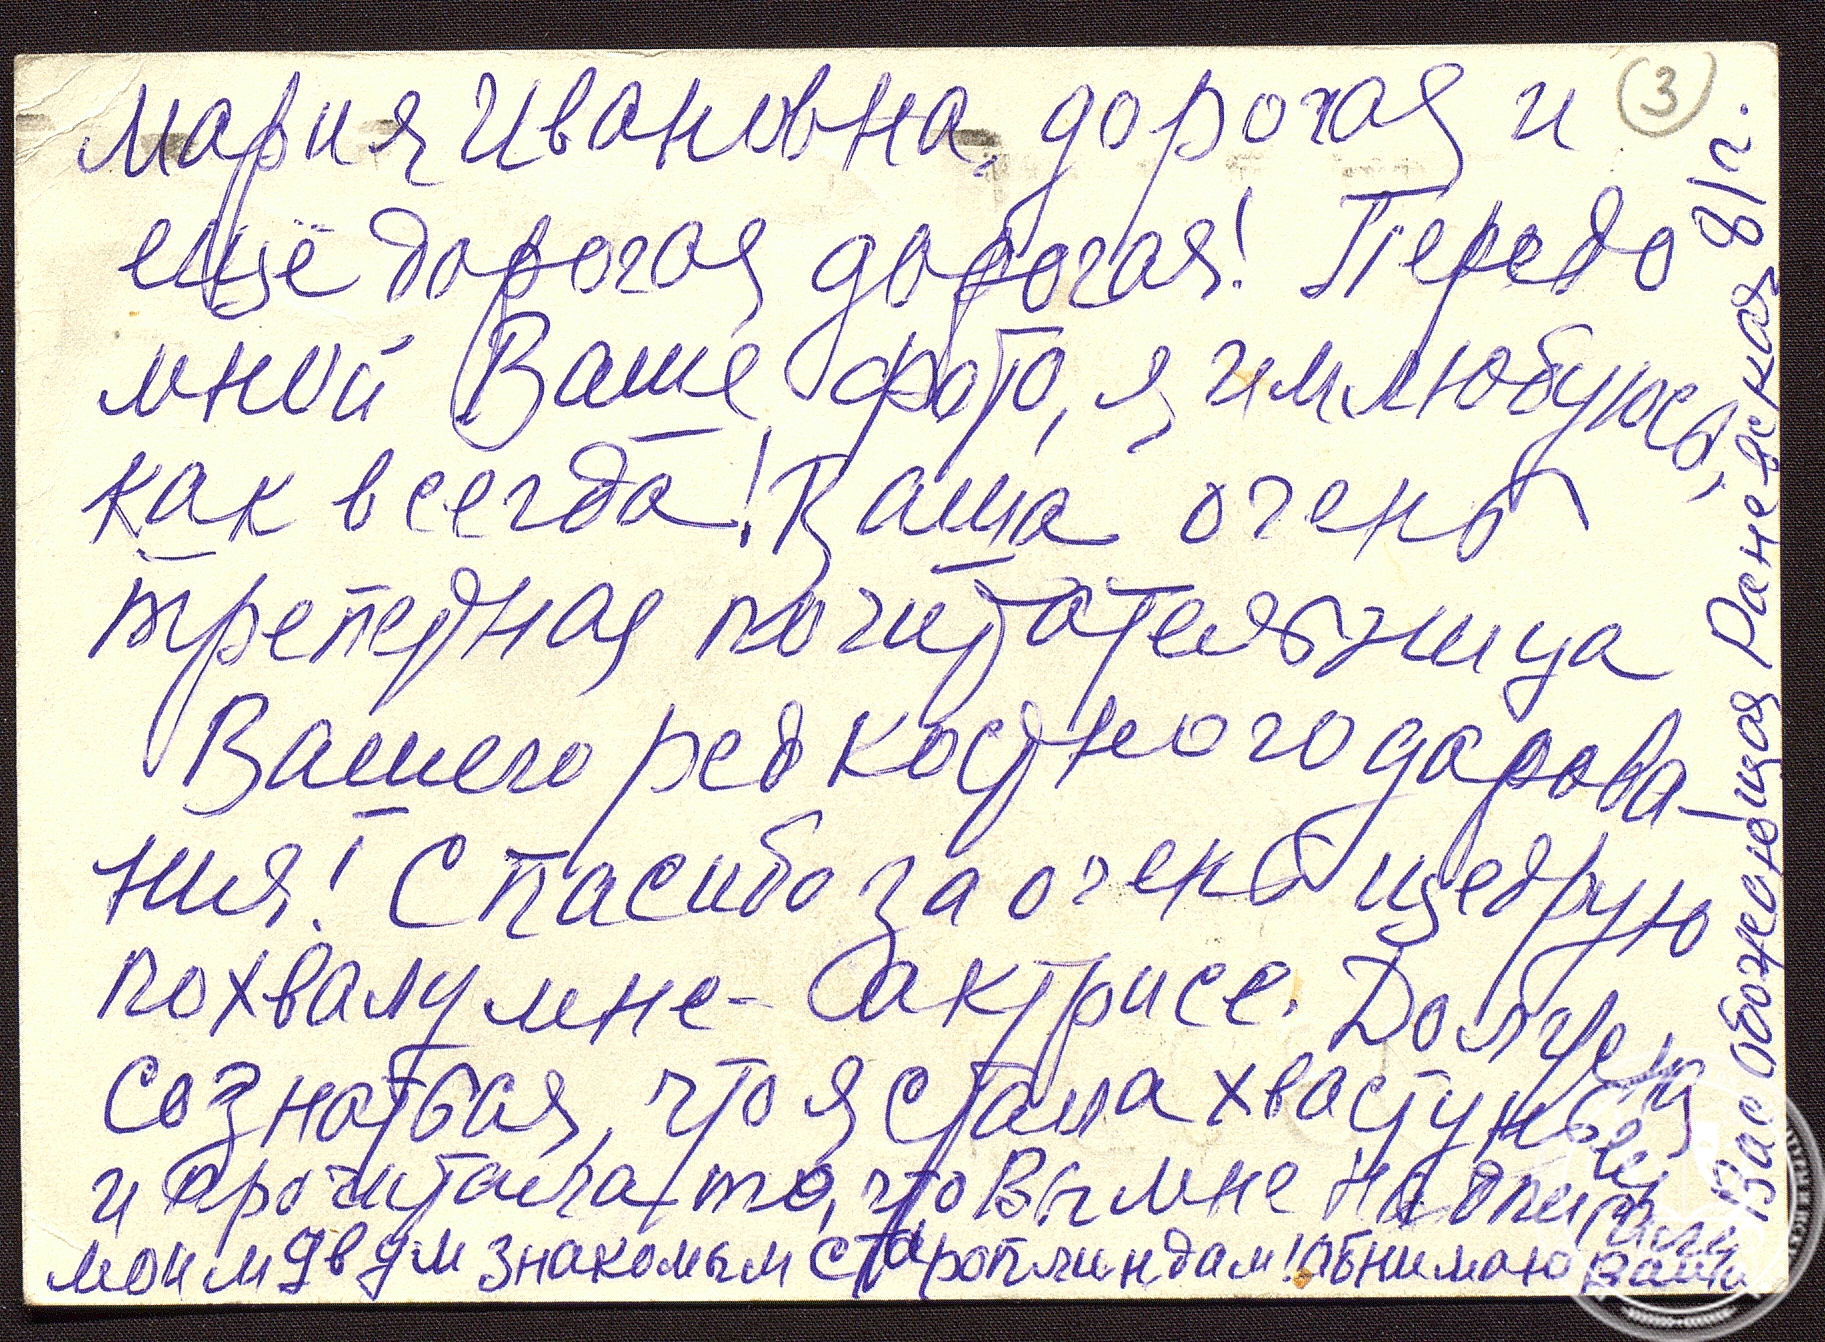 3
Мария Ивановна, дорогая и
ещё дорогая дорогая! Передо
мной Ваше фото, я им любуюсь,
как всегда! Ваша очень
трепетная почитательница
Вашего редкостного дарова-
ния! Спасибо за очень щедрую
похвалу мне - актрисе. Должна
сознаться, что я стала хвастуньей
и прочитала то, что Вы мне надписали
моим двум знакомым старопчиндам! Обнимаю Ваша
Вас обожающая Раневская 81 г.